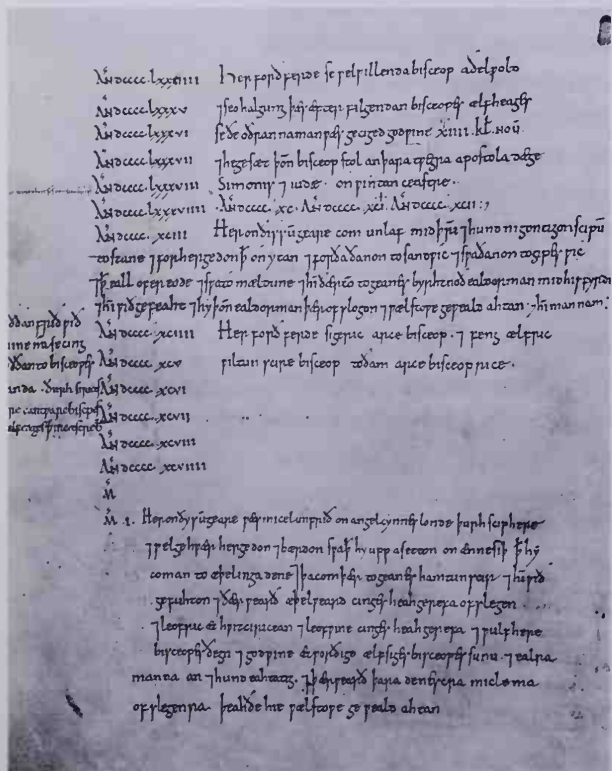 AÑ dcccc.lxxxiiii Her forðferde se ƿelƿillenda bisceop adelƿold
AÑ dcccc.lxxxv ⁊ seo halgung þæs æfter filgendan bisceopes ælfheages
AÑ dcccc.lxxxvi se ðe oðran naman ƿæs geciged godƿine xiiii. kł. nou
AÑ dcccc.lxxxvii ⁊ he gesæt þon bisceop stol an þara tƿegra apostola dæge
AÑ dcccc.lxxxviii Simonis ⁊ iude. on ƿintan ceastre.
AÑ dcccc.lxxxviiii .AÑ dcccc. xc. AÑ dcccc. xci. AÑ dcccc. xcii:,
AÑ dcccc. xciii Her on ðissū geare com unlaf mid þrim ⁊ hund nigentigon scipū
to stane ⁊ forhergedon þ on ytan ⁊ for ða ðanon to sandƿic ⁊ sƿa ðanon to gypesƿic
⁊ þ eall ofereode ⁊ sƿa to mældune ⁊ him ðær com togeanes byrhtnoð ealdorman mid his fyrde
⁊ him ƿið gefeaht ⁊ hy þone ealdorman þær ofslogon ⁊ ƿælstoƿe geƿeald ahtan ⁊ him man nam
AÑ dcccc. xciiii Her forðferde sigeric arce bisceop. ⁊ feng ælfric
AÑ dcccc xcv ƿiltun scire bisceop to ðam arce bisceoprice.
ðan to bisceopes
AÑ dcccc xcvi
AÑ dcccc xcvii
AÑ dcccc xcviii
AÑ dcccc xcviiii
M̄
M̄ .i. Her on ðysū geare ƿæs micel unfrið on angelcynnes londe þurh sciphere
⁊ ƿel gehƿær hergedon ⁊ bærndon sƿa þ hy upp asetton on ænne sið þ hy
coman to æþelinga dene ⁊ þa com þær togeanes hamtunscir ⁊ him ƿið
gefuhton ⁊ ðær ƿearð æþelƿeard cinges heahgerefa ofslegen
⁊ leofric æt hƿitciricean ⁊ leofƿine cinges heahgerefa ⁊ ƿulfhere
bisceopes ðegn ⁊ godƿine æt ƿorðige ælfsiges bisceopes sunu. ⁊ ealra
manna an ⁊ hund eahtatig. ⁊ þær ƿearð þara denescra micle ma
ofslegenra þeah ðe hie ƿælstoƿe geƿeald ahtan